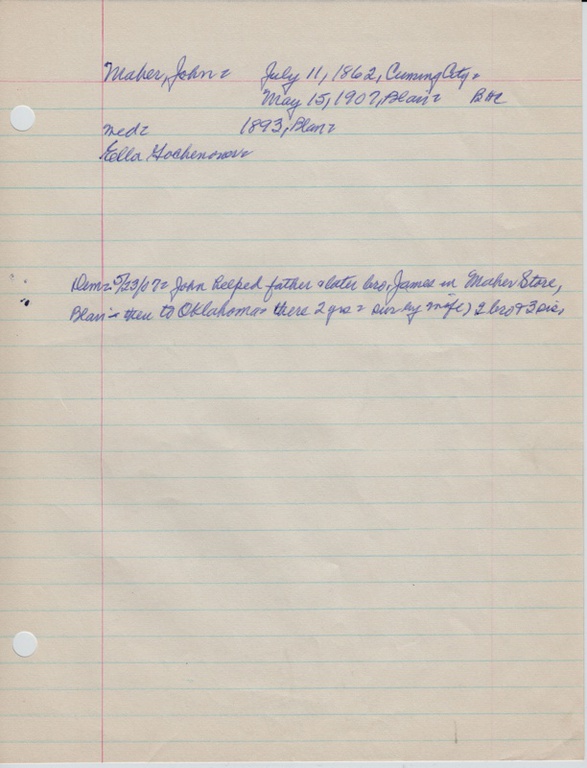 Maher, John = July 11, 1862, Cuming City =
May 15, 1907, Blair = BHC
med = 1893, Blair =
Ella Gochenour =
Dem = 5/23/07 = John helped father & later bro, James in Maher Store,
Blair = then to Oklahoma = there 2 yrs = sur by wife, 2 bro & 3 sis,